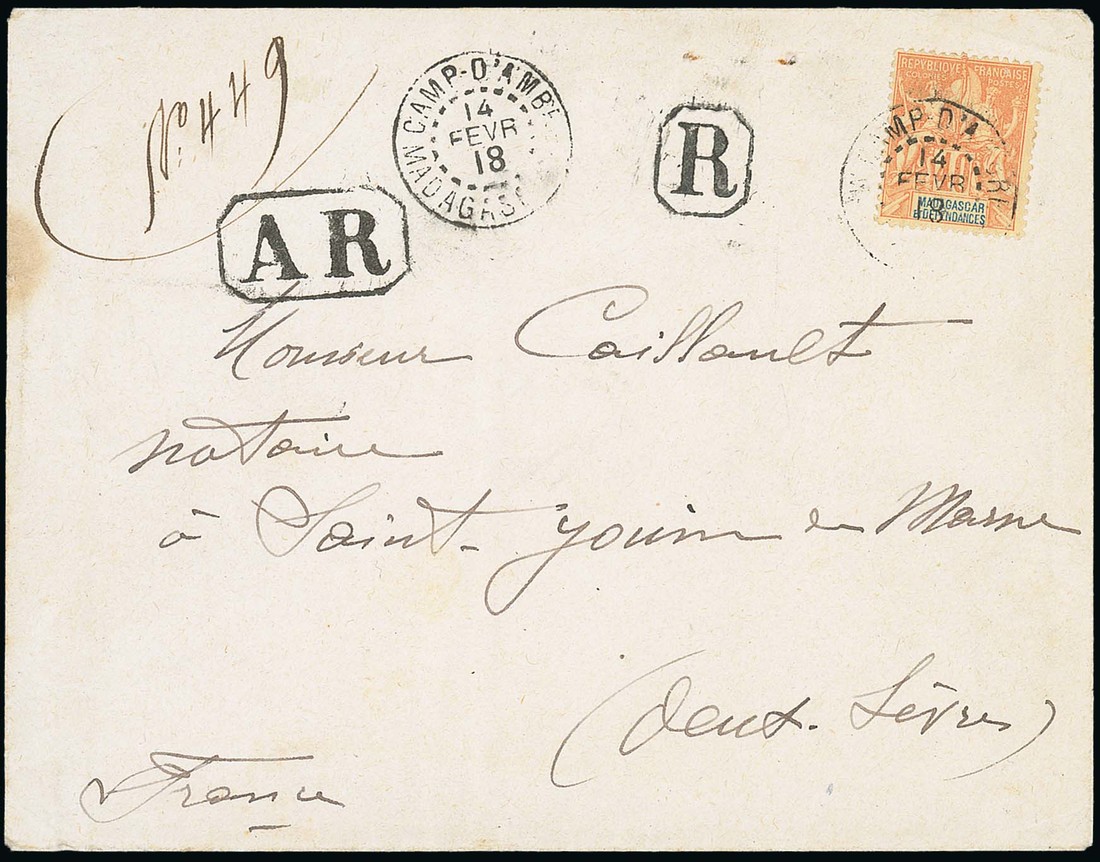 No. 449
CAMP-D'AMB
14
FEVR
18
MADAGAS
R
REPUBLIQUE FRANÇAISE
COLONIES POSTES
MADAGASCAR
ET DÉPENDANCES
MP-D'A
14
FEVR
AR
Monsieur Caillault
notaire
à Saint-Jouin de Marne
(Deux-Sèvres)
France